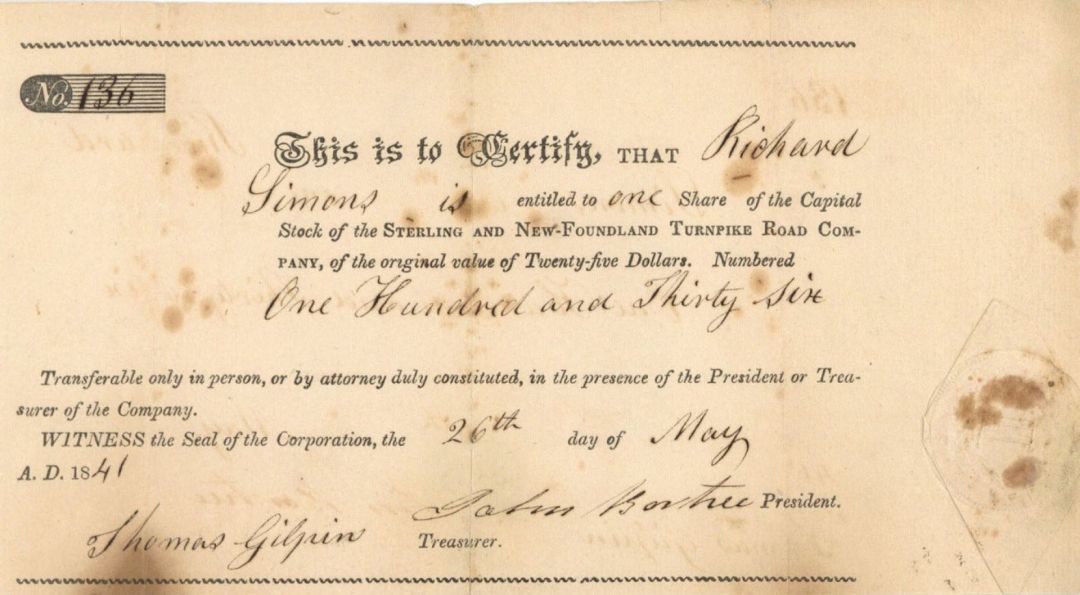 No. 136
This is to Certify, THAT Richard
Simons is entitled to one Share of the Capital
Stock of the STERLING AND NEW-FOUNDLAND TURNPIKE ROAD COM-
PANY, of the original value of Twenty-five Dollars. Numbered
One Hundred and Thirty Six
Transferable only in person, or by attorney duly constituted, in the presence of the President or Trea-
surer of the Company.
WITNESS the Seal of the Corporation, the 26th day of May
A. D. 1841
John Bortree President.
Thomas Gilpin Treasurer.